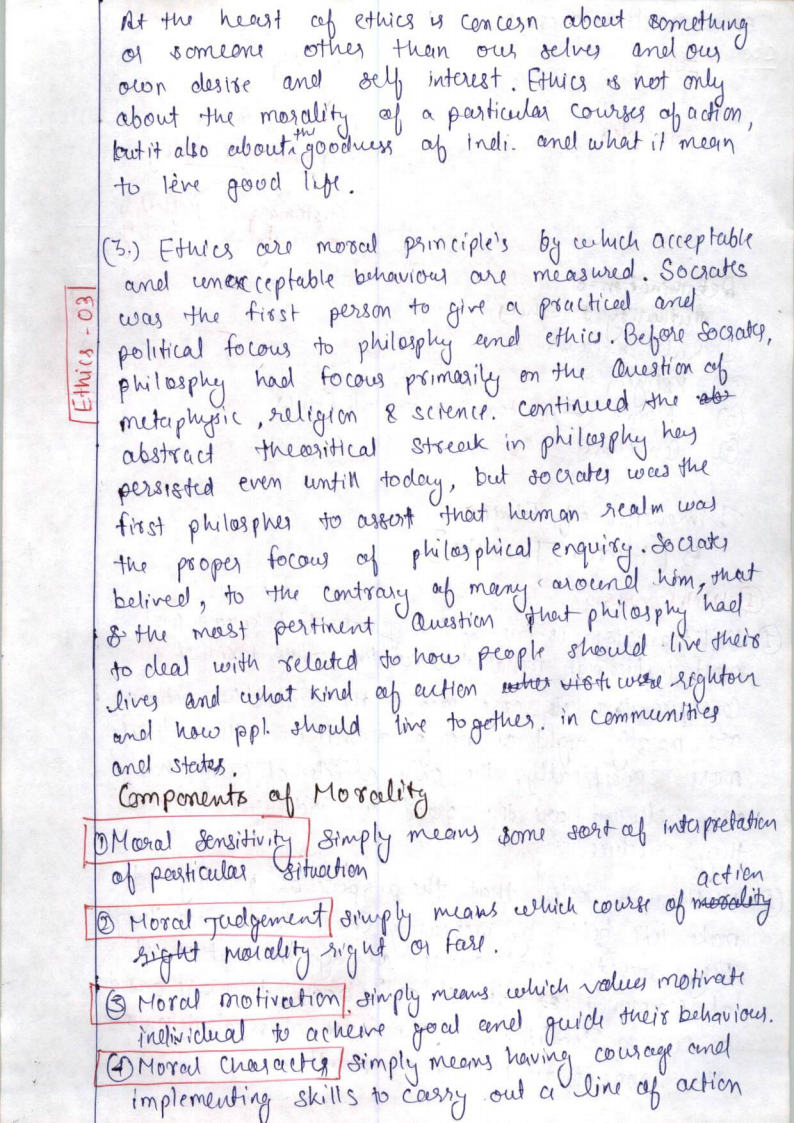 At the heart of ethics is concern about something
or someone other than our selves and our
own desire and self interest. Ethics is not only
about the morality of a particular courses of action,
but it also about the goodness of indi. and what it mean
to leve good life.
(3.) Ethics are moral principle's by which acceptable
and unexcceptable behaviour are measured. Socrates
was the first person to give a practical and
political focous to philosphy and ethics. Before Socrates,
philosphy had focous primarily on the Question of
metaphysic, religion & science. continued the ab
abstract theoritical streak in philosphy has
persisted even untill today, but socrates was the
first philospher to assert that human realm was
the proper focous of philosphical enquiry. Socrates
belived, to the contrary of many around him, that
& the most pertinent Question that philosphy had
to deal with related to how people should live their
lives and what kind of action were right our
and how ppl. should live together. in communities
and states.
Ethics - 03
Components of Morality
① Moral Sensitivity simply means some sort of intrpretation
of particular situation
② Moral Judgement simply means which course of morality action
right morality right or fase.
③ Moral motivation simply means which values motivate
individual to acheive goal and guide their behaviour.
④ Moral Character simply means having courage and
implementing skills to carry out a line of action